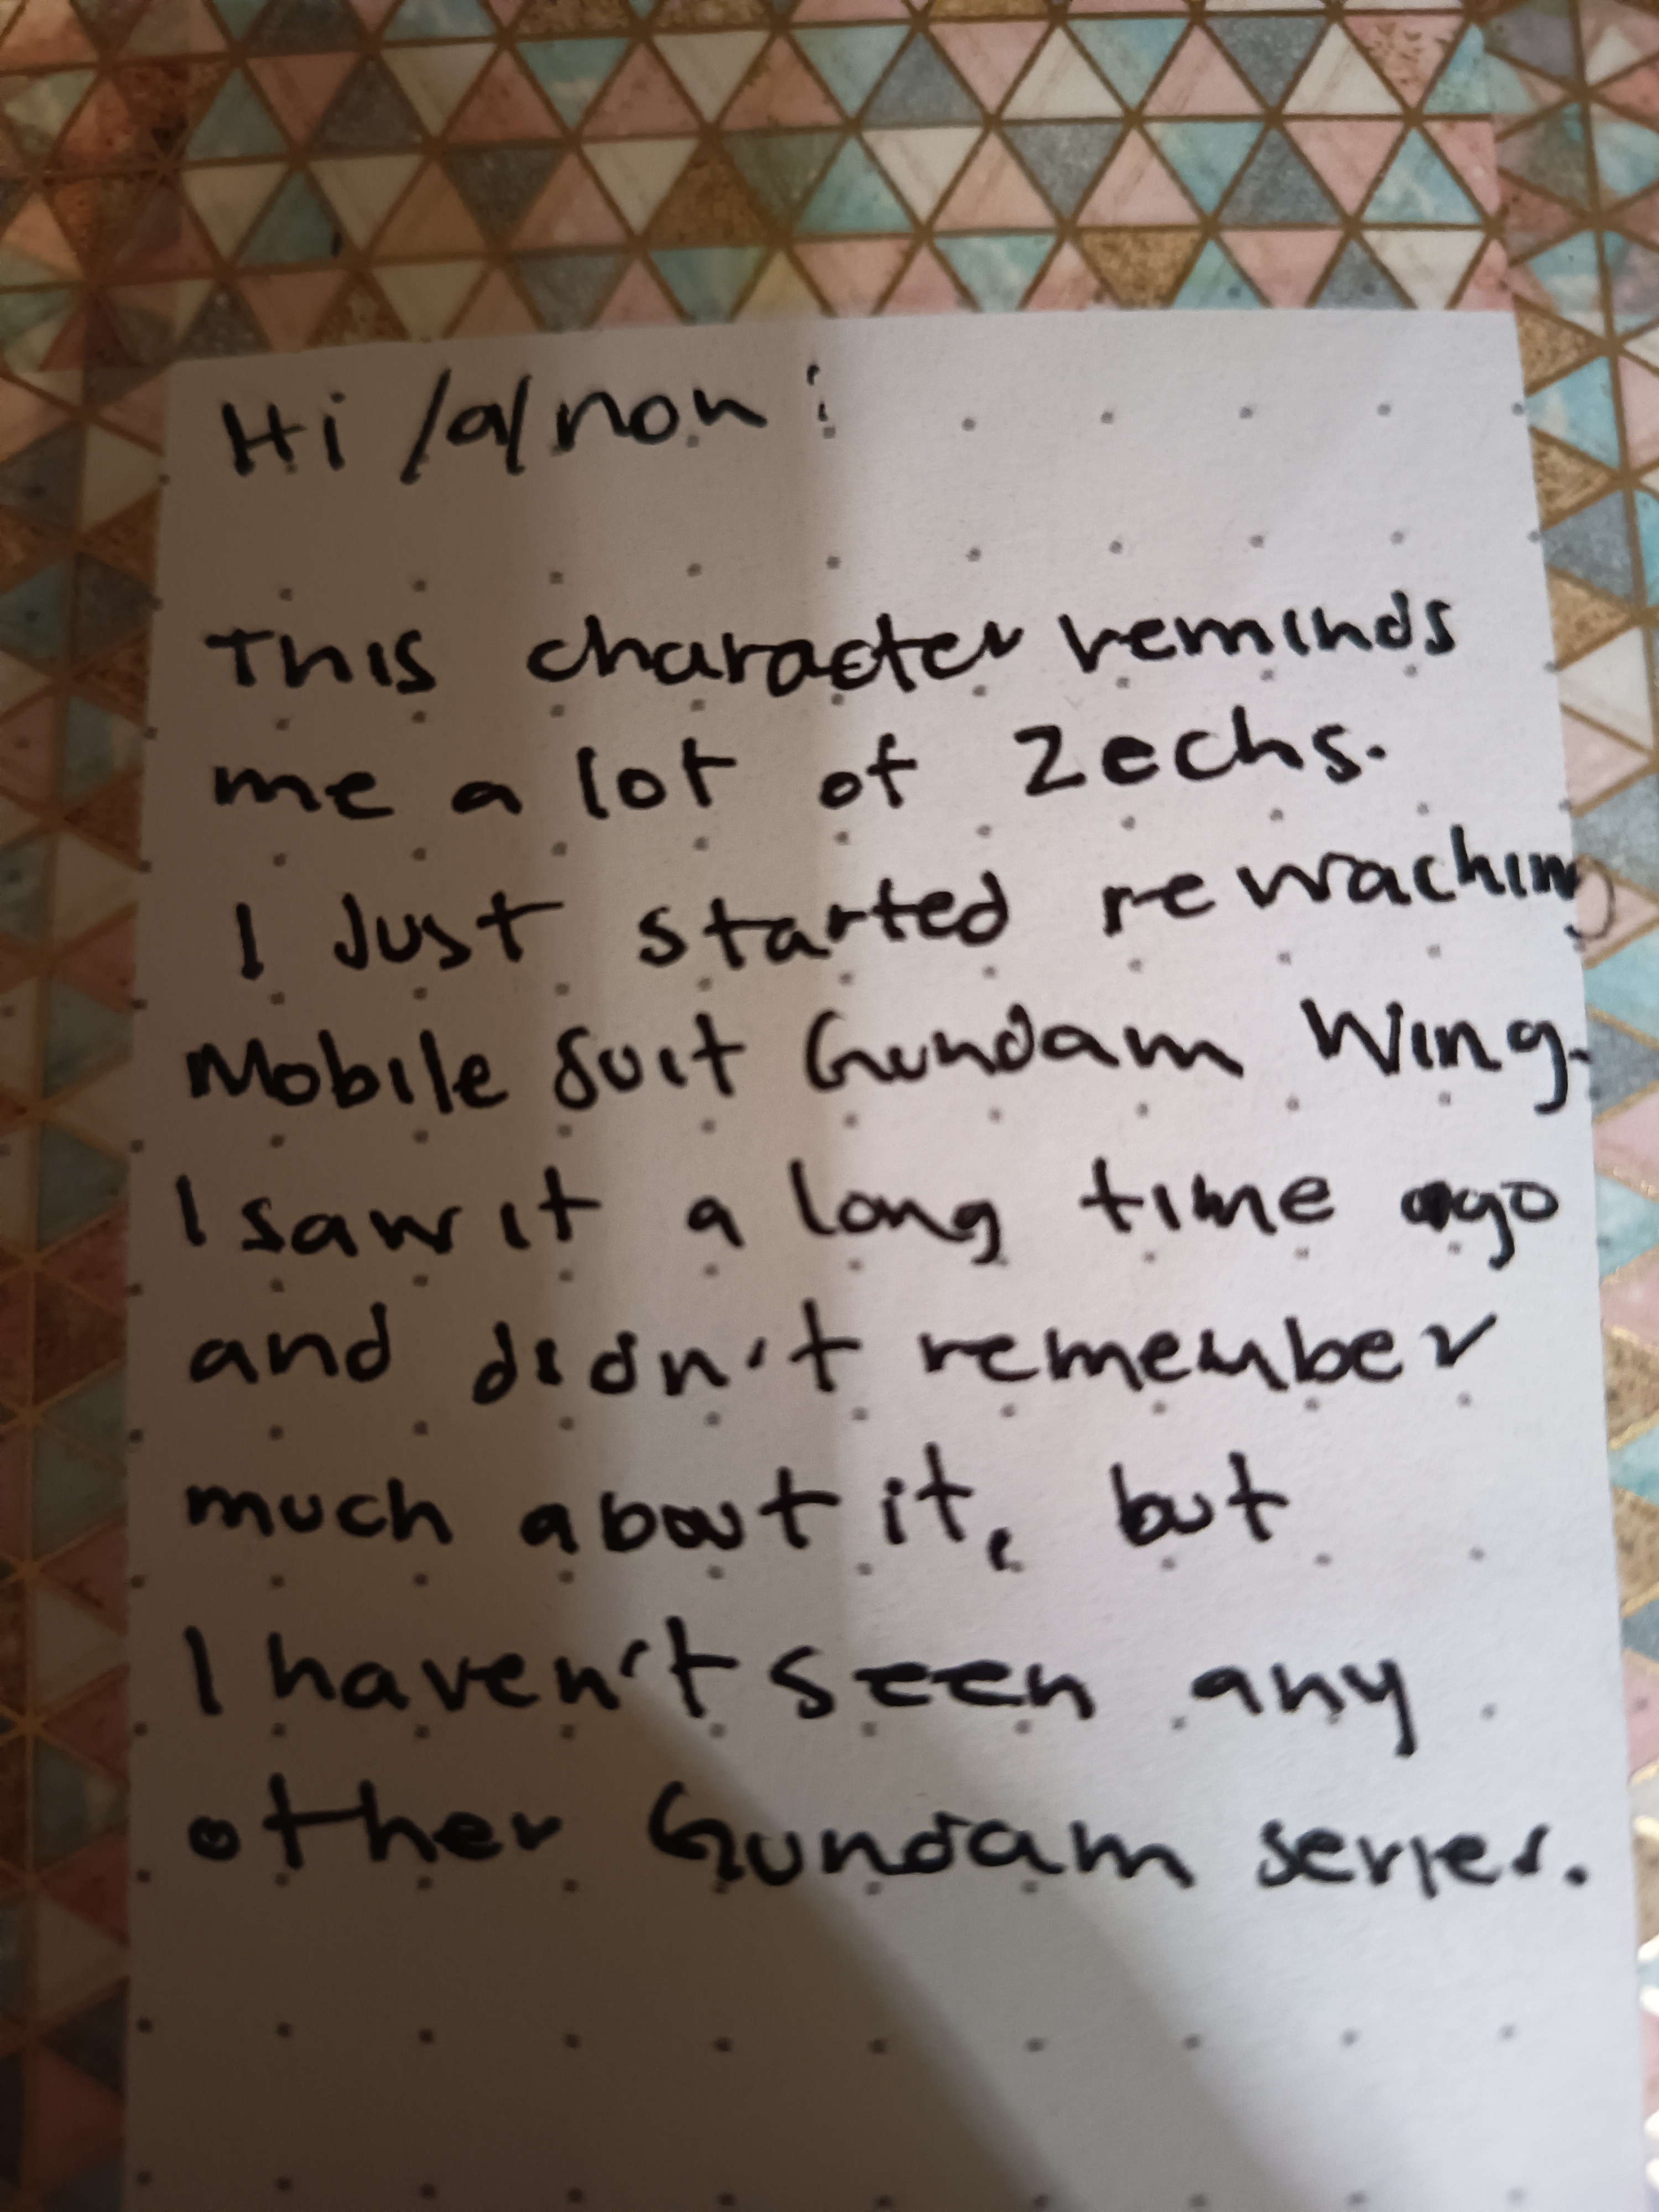 Hi /a/non!
This character reminds
me a lot of Zechs.
I Just started rewaching
Mobile Suit Gundam Wing.
I saw it a long time ago
and didn't remember
much about it, but
I haven't seen any
other Gundam series.